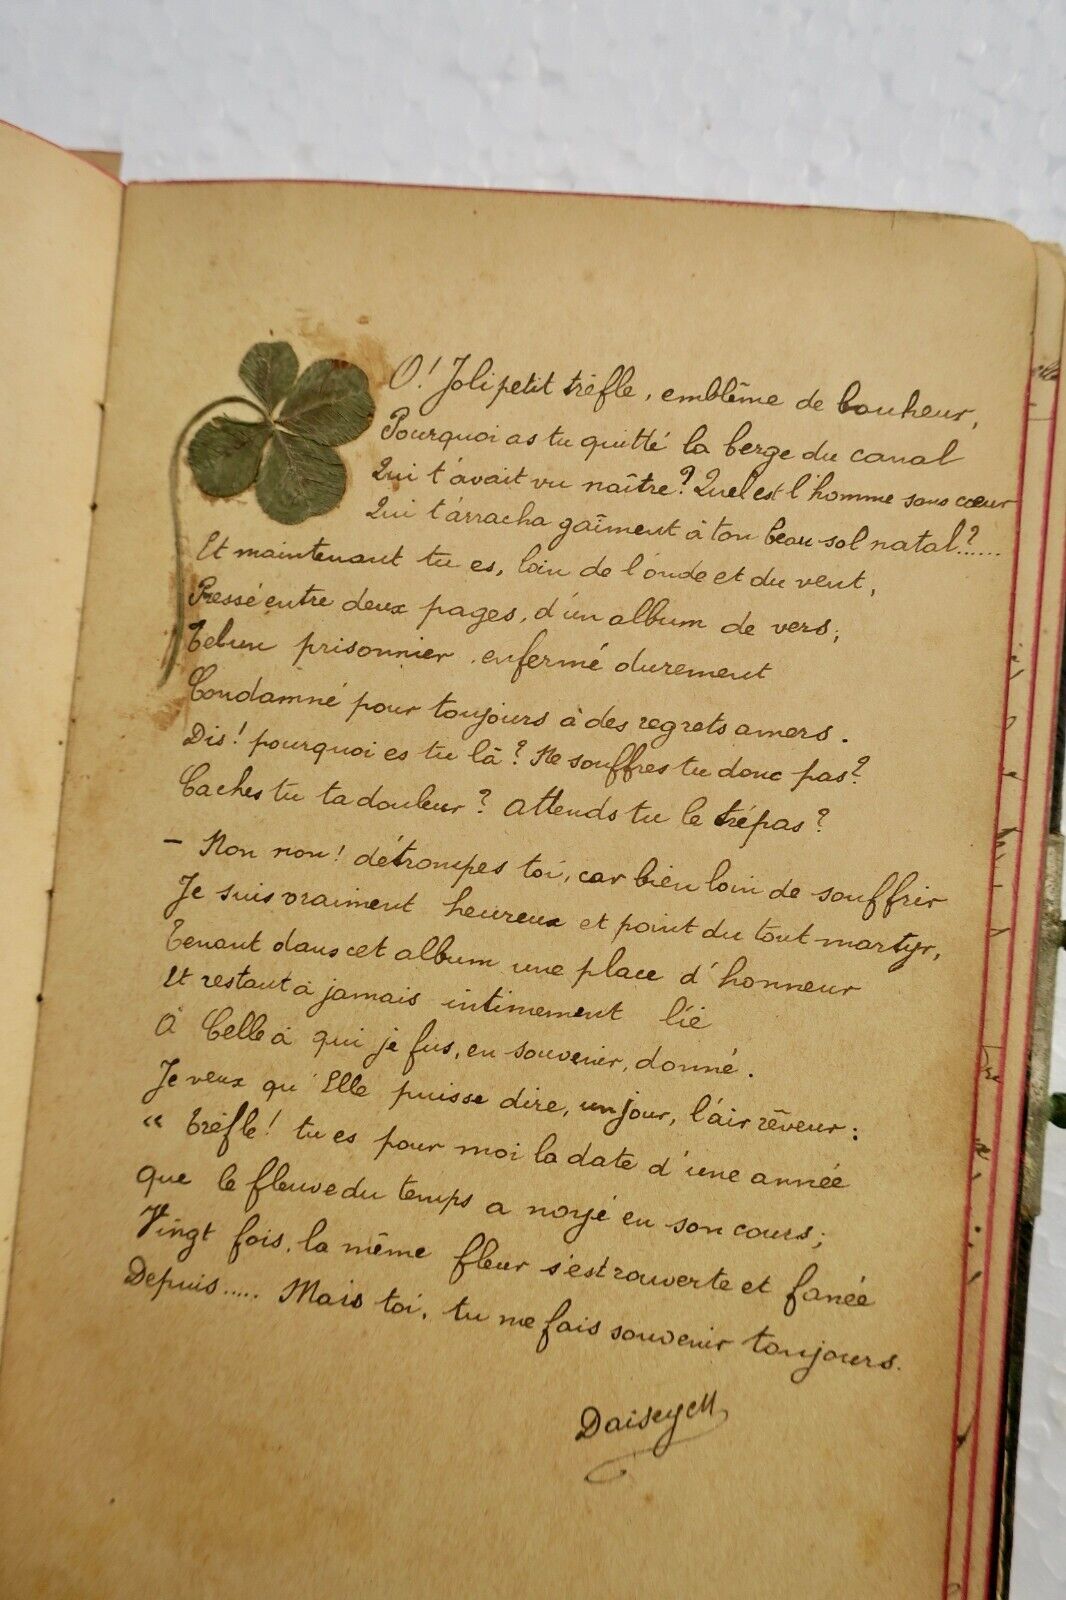 O! Joli petit trèfle, emblême de bonheur,
Pourquoi as tu quitté la berge du canal
Qui t'avait vu naître? Quel est l'homme sans cœur
Qui t'arracha gaîment à ton beau sol natal?......
Et maintenant tu es, loin de l'onde et du vent,
Pressé entre deux pages, d'un album de vers;
Tel un prisonnier enfermé durement
Condamné pour toujours à des regrets amers.
Dis! pourquoi es tu là? Ne souffres tu donc pas?
Caches tu ta douleur? Attends tu le trépas?
- Non non! détrompes toi, car bien loin de souffrir
Je suis vraiment heureux et point du tout martyr,
Tenant dans cet album une place d'honneur
Et restant à jamais intimement lié
À Celle à qui je fus, en souvenir, donné.
Je veux qu'Elle puisse dire, un jour, l'air rêveur:
« Trèfle! tu es pour moi la date d'une année
Que le fleuve du temps a noyé en son cours;
Vingt fois, la même fleur s'est rouverte et fanée
Depuis..... Mais toi, tu me fais souvenir toujours.
Daisey M